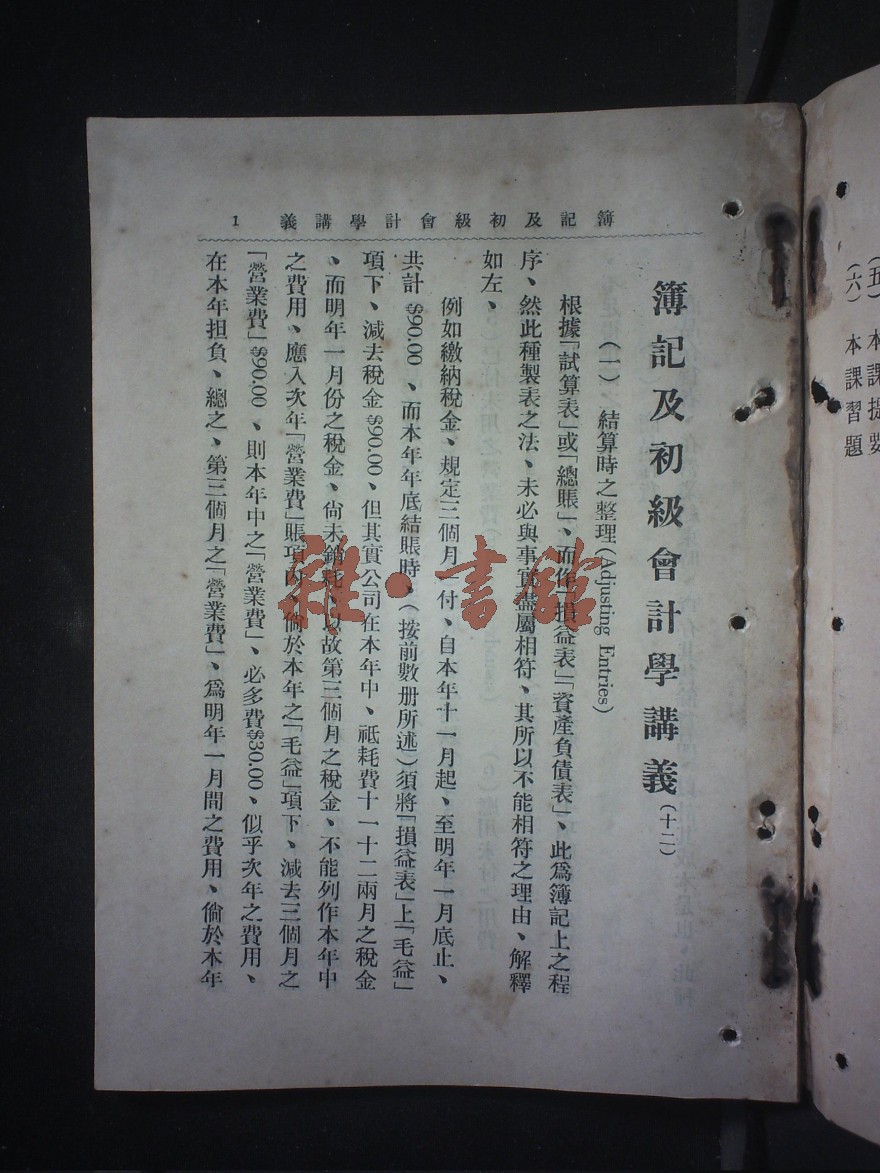 簿記及初級會計學講義 1
簿記及初級會計學講義(十二)
(一) 結算時之整理(Adjusting Entries)
根據「試算表」或「總賬」、而作「損益表」「資產負債表」、此爲簿記上之程
序、然此種製表之法、未必與事實盡屬相符、其所以不能相符之理由、解釋
如左、
例如繳納稅金、規定三個月一付、自本年十一月起、至明年一月底止、
共計$90.00、而本年年底結賬時、(按前數册所述)須將「損益表」上「毛益」
項下、減去稅金$90.00、但其實公司在本年中、祗耗費十一十二兩月之稅金
、而明年一月份之稅金、尙未銷耗、以故第三個月之稅金、不能列作本年中
之費用、應入次年「營業費」賬項內、倘於本年之「毛益」項下、減去三個月之
「營業費」$90.00、則本年中之「營業費」、必多費$30.00、似乎次年之費用、
在本年担負、總之、第三個月之「營業費」、爲明年一月間之費用、倘於本年
(五) 本課提要
(六) 本課習題
雜·書館